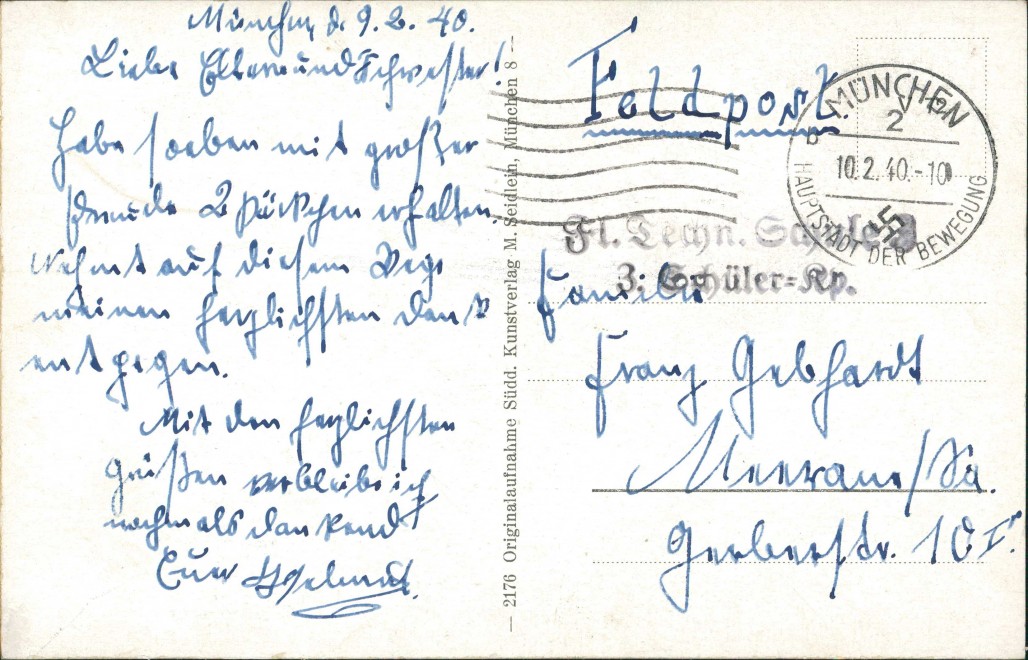 München, d. 9.2.40.
Liebe Eltern und Schwester!
Habe soeben mit großer
Freude 2 Päckchen erhalten.
Nehmt auf diesem Wege
meinen herzlichsten Dank
entgegen.
Mit den herzlichsten
Grüßen verbleibe ich
nochmals dankend
Euer Helmut.
— 2176 Originalaufnahme Südd. Kunstverlag M. Seidlein, München 8 —
Feldpost.
MÜNCHEN
2
b
10.2.40.-10
HAUPTSTADT DER BEWEGUNG
Fl. Techn. Schule
3. Schüler=Kp.
Familie
Franz Gebhardt
Meerane/Sa.
Gerberstr. 10 I.